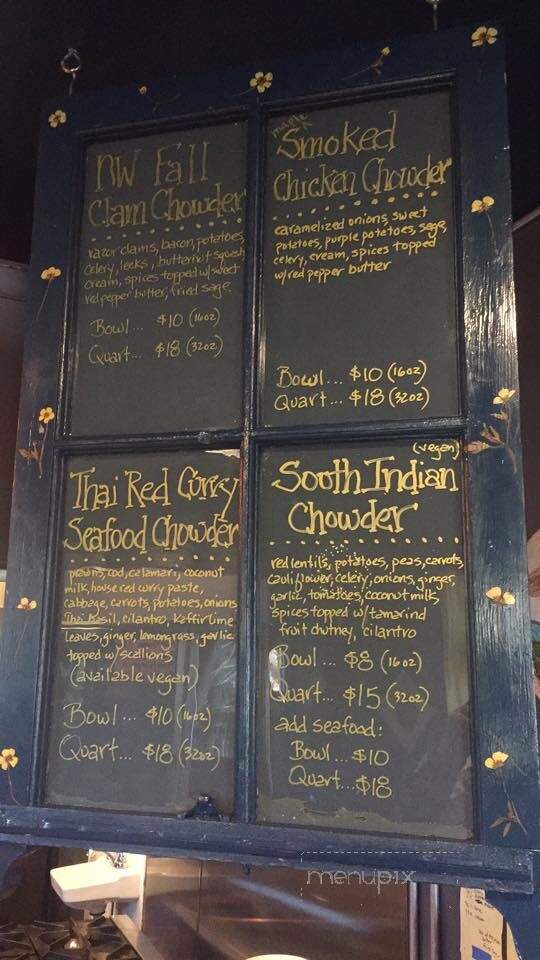 NW Fall
Clam Chowder
razor clams, bacon, potatoes,
celery, leeks, butternut squash,
cream, spices topped w/sweet
red pepper butter, fried sage
Bowl... $10 (16oz)
Quart... $18 (32oz)
maple
Smoked
Chicken Chowder
caramelized onions, sweet
potatoes, purple potatoes, sage,
celery, cream, spices topped
w/red pepper butter
Bowl... $10 (16oz)
Quart... $18 (32oz)
Thai Red Curry
Seafood Chowder
prawns, cod, calamari, coconut
milk, house red curry paste,
cabbage, carrots, potatoes, onions
Thai Basil, cilantro, Kaffir Lime
leaves, ginger, lemongrass, garlic
topped w/scallions
(available vegan)
Bowl... $10 (16oz)
Quart... $18 (32oz)
(vegan)
South Indian
Chowder
red lentils, potatoes, peas, carrots,
cauliflower, celery, onions, ginger,
garlic, tomatoes, coconut milk
spices topped w/tamarind
fruit chutney, cilantro
Bowl... $8 (16oz)
Quart... $15 (32oz)
add seafood:
Bowl... $10
Quart... $18
menupix